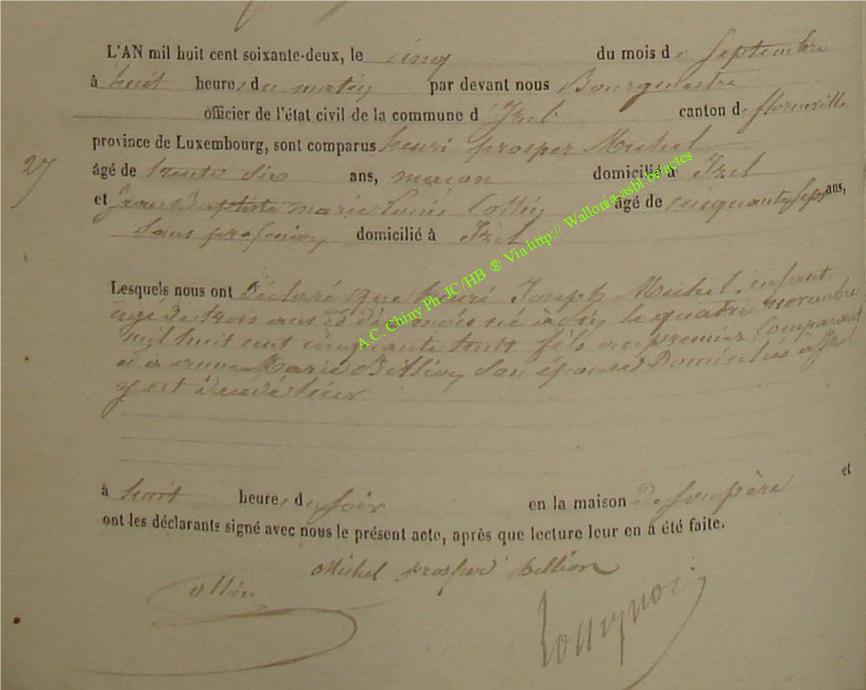 L'AN mil huit cent soixante-deux, le cinq du mois de Septembre
à huit heures du matin par devant nous Bourgmestre
officier de l'état civil de la commune d'Izel canton de florenville
province de Luxembourg, sont comparus henri prosper Michel
27
âgé de trente six ans, maçon domicilié à Izel
et Jean Baptiste marie Louis Collin âgé de cinquante sept ans,
Sans profession domicilié à Izel
Lesquels nous ont Déclaré que henri Joseph Michel, enfant
âgé de trois ans et dix mois né à le quatre novembre
mil huit cent cinquante huit fils au premier Comparant
et à Marie Son épouse Domiciliés à Izel
y est Décédé hier
à huit heures du soir en la maison de son père et
ont les déclarants signé avec nous le présent acte, après que lecture leur en a été faite.
Michel prosper
A.C. Chiny Ph.JC/HB ® Via http:// Wallonia-asbl.be/actes